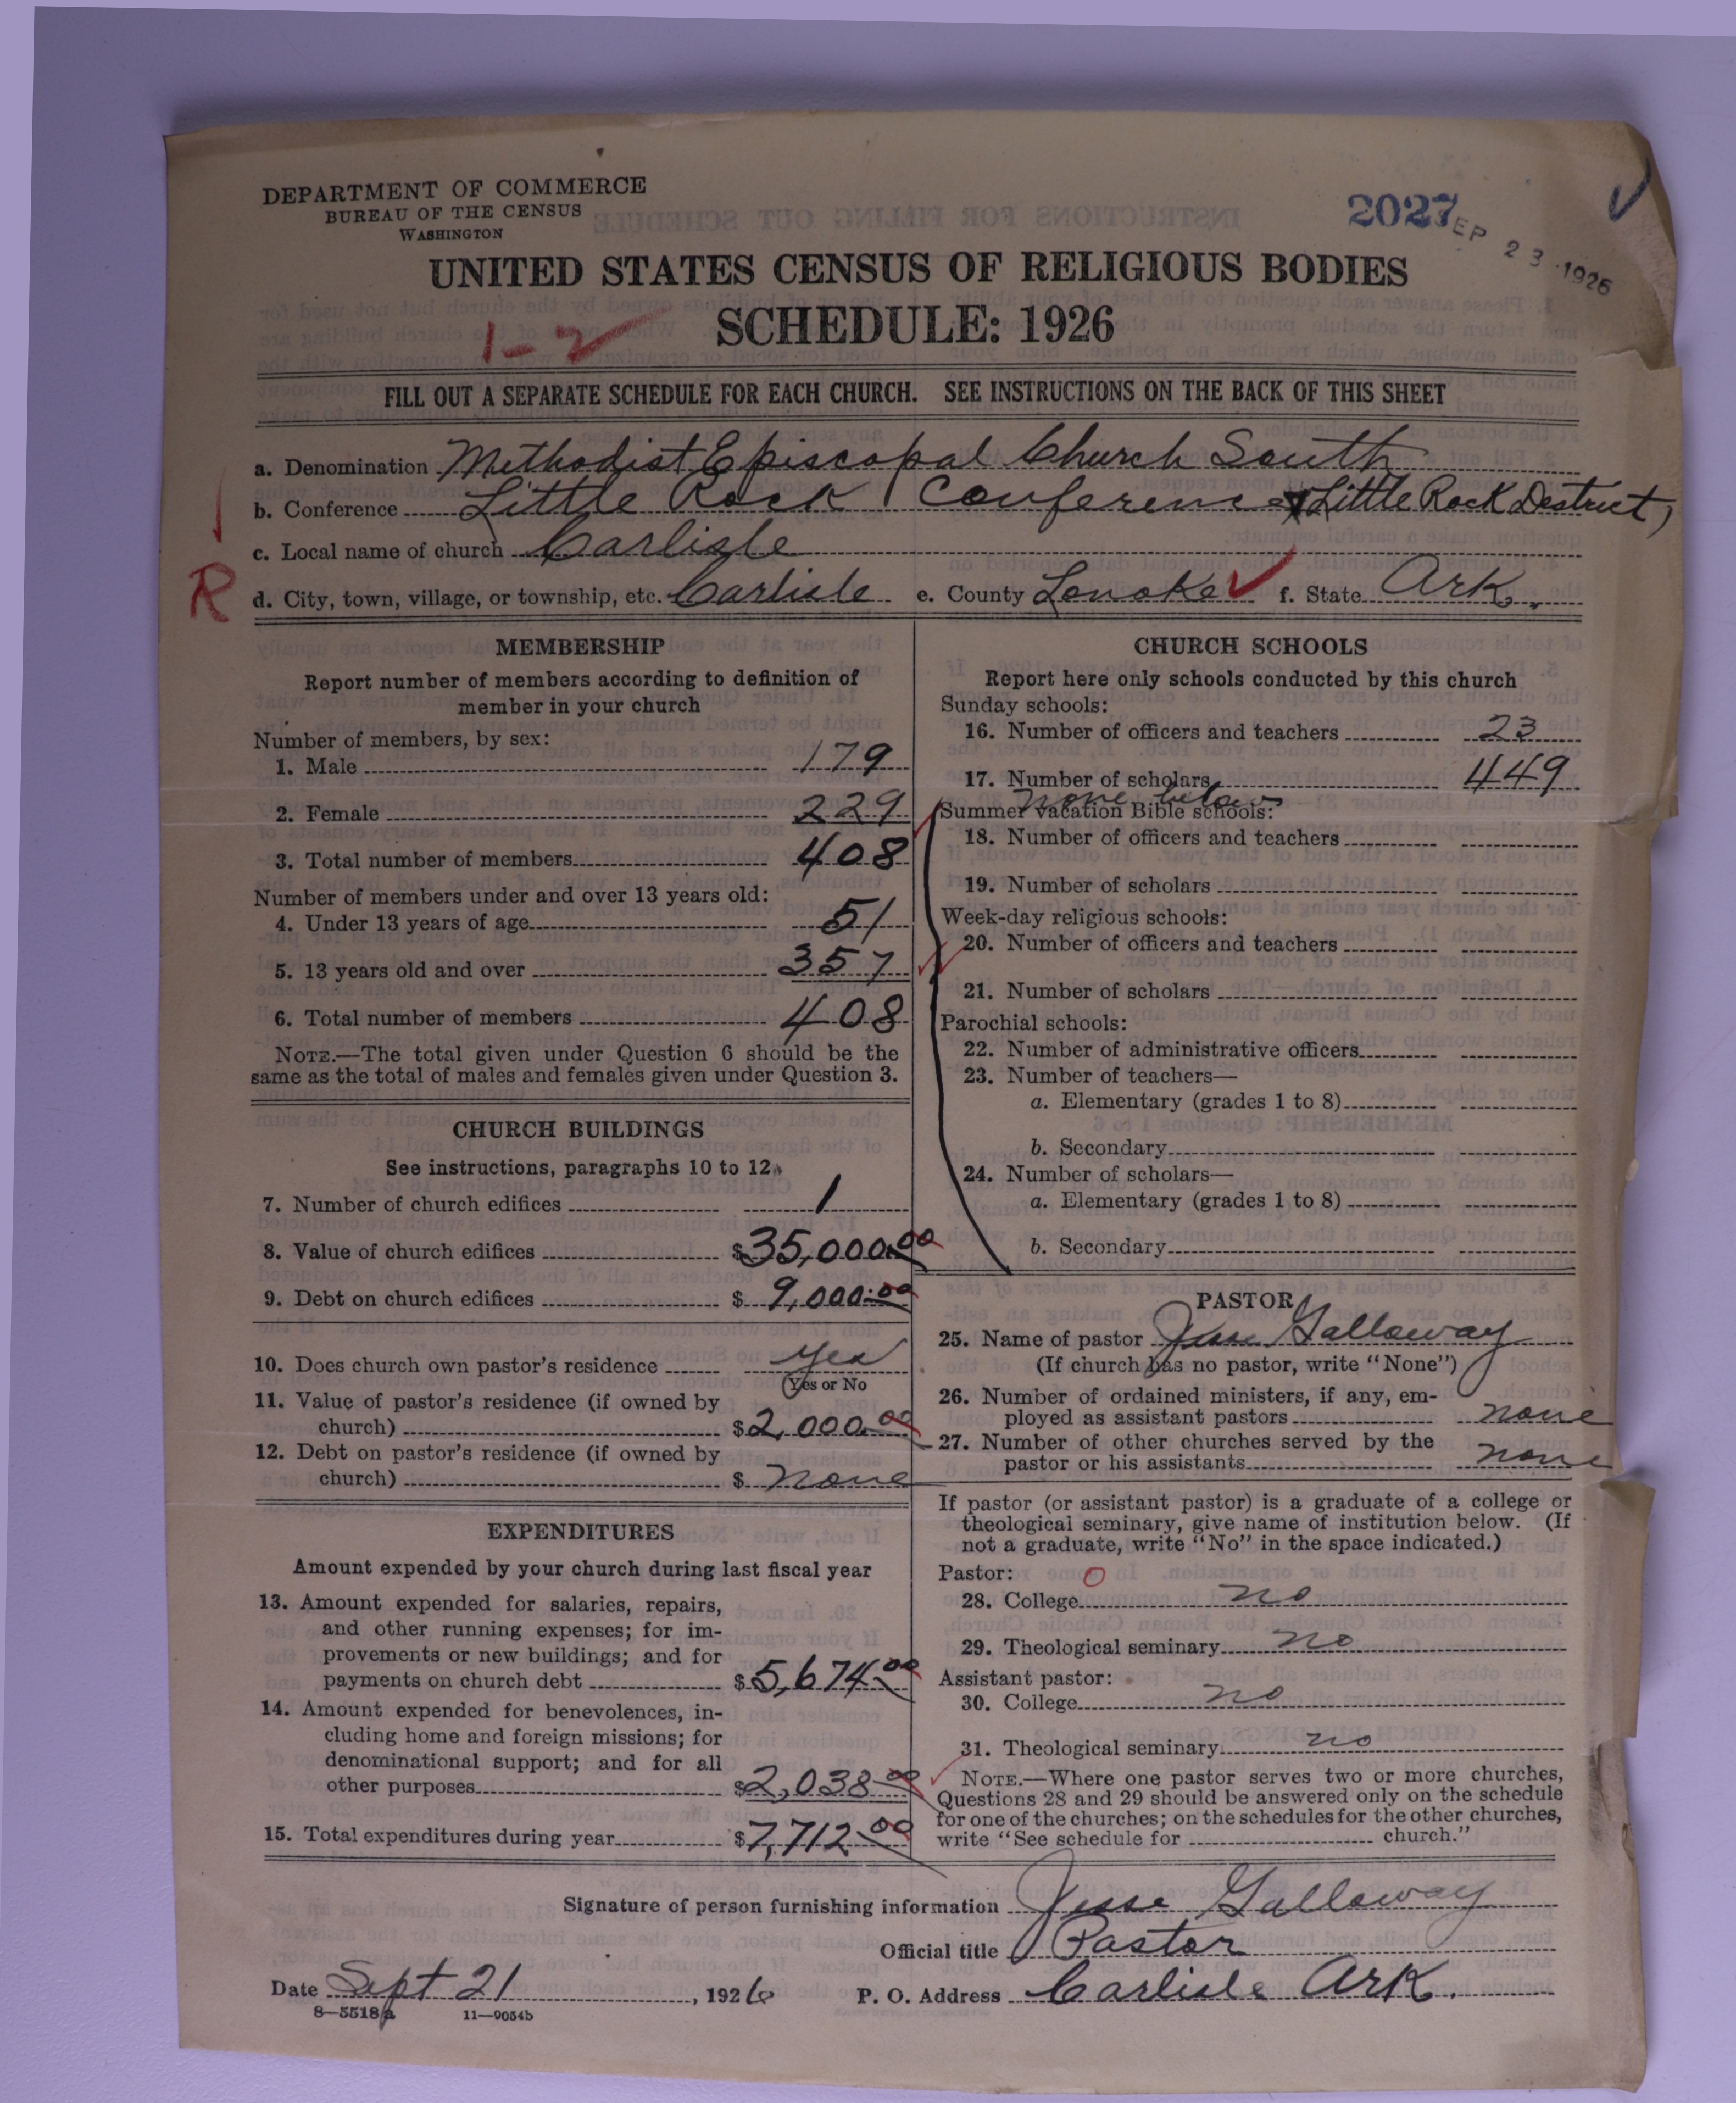 DEPARTMENT OF COMMERCE
BUREAU OF THE CENSUS
WASHINGTON
2027
SEP 23 1926
UNITED STATES CENSUS OF RELIGIOUS BODIES
SCHEDULE: 1926
1-2
FILL OUT A SEPARATE SCHEDULE FOR EACH CHURCH. SEE INSTRUCTIONS ON THE BACK OF THIS SHEET
a. Denomination Methodist Episcopal Church South
b. Conference Little Rock Conference, Little Rock District,
c. Local name of church Carlisle
R
d. City, town, village, or township, etc. Carlisle e. County Lonoke f. State Ark.
MEMBERSHIP
Report number of members according to definition of
member in your church
Number of members, by sex:
1. Male 179
2. Female 229
3. Total number of members 408
Number of members under and over 13 years old:
4. Under 13 years of age 51
5. 13 years old and over 357
6. Total number of members 408
NOTE.—The total given under Question 6 should be the
same as the total of males and females given under Question 3.
CHURCH BUILDINGS
See instructions, paragraphs 10 to 12
7. Number of church edifices 1
8. Value of church edifices $35,000.00
9. Debt on church edifices $ 9,000.00
10. Does church own pastor's residence yes
(Yes or No
11. Value of pastor's residence (if owned by
church) $2,000.00
12. Debt on pastor's residence (if owned by
church) $ none
EXPENDITURES
Amount expended by your church during last fiscal year
13. Amount expended for salaries, repairs,
and other running expenses; for im-
provements or new buildings; and for
payments on church debt $5,674.00
14. Amount expended for benevolences, in-
cluding home and foreign missions; for
denominational support; and for all
other purposes $2,038.00
15. Total expenditures during year $7,712.00
CHURCH SCHOOLS
Report here only schools conducted by this church
Sunday schools:
16. Number of officers and teachers 23
17. Number of scholars 449
none below
Summer vacation Bible schools:
18. Number of officers and teachers
19. Number of scholars
Week-day religious schools:
20. Number of officers and teachers
21. Number of scholars
Parochial schools:
22. Number of administrative officers
23. Number of teachers—
a. Elementary (grades 1 to 8)
b. Secondary
24. Number of scholars—
a. Elementary (grades 1 to 8)
b. Secondary
PASTOR
25. Name of pastor Jesse Galloway
(If church has no pastor, write "None")
26. Number of ordained ministers, if any, em-
ployed as assistant pastors none
27. Number of other churches served by the
pastor or his assistants none
If pastor (or assistant pastor) is a graduate of a college or
theological seminary, give name of institution below. (If
not a graduate, write "No" in the space indicated.)
Pastor: 0
28. College no
29. Theological seminary no
Assistant pastor:
30. College no
31. Theological seminary no
NOTE.—Where one pastor serves two or more churches,
Questions 28 and 29 should be answered only on the schedule
for one of the churches; on the schedules for the other churches,
write "See schedule for church."
Signature of person furnishing information Jesse Galloway
Official title Pastor
Date Sept 21, 1926 P. O. Address Carlisle Ark.
8—5518a 11—9054b